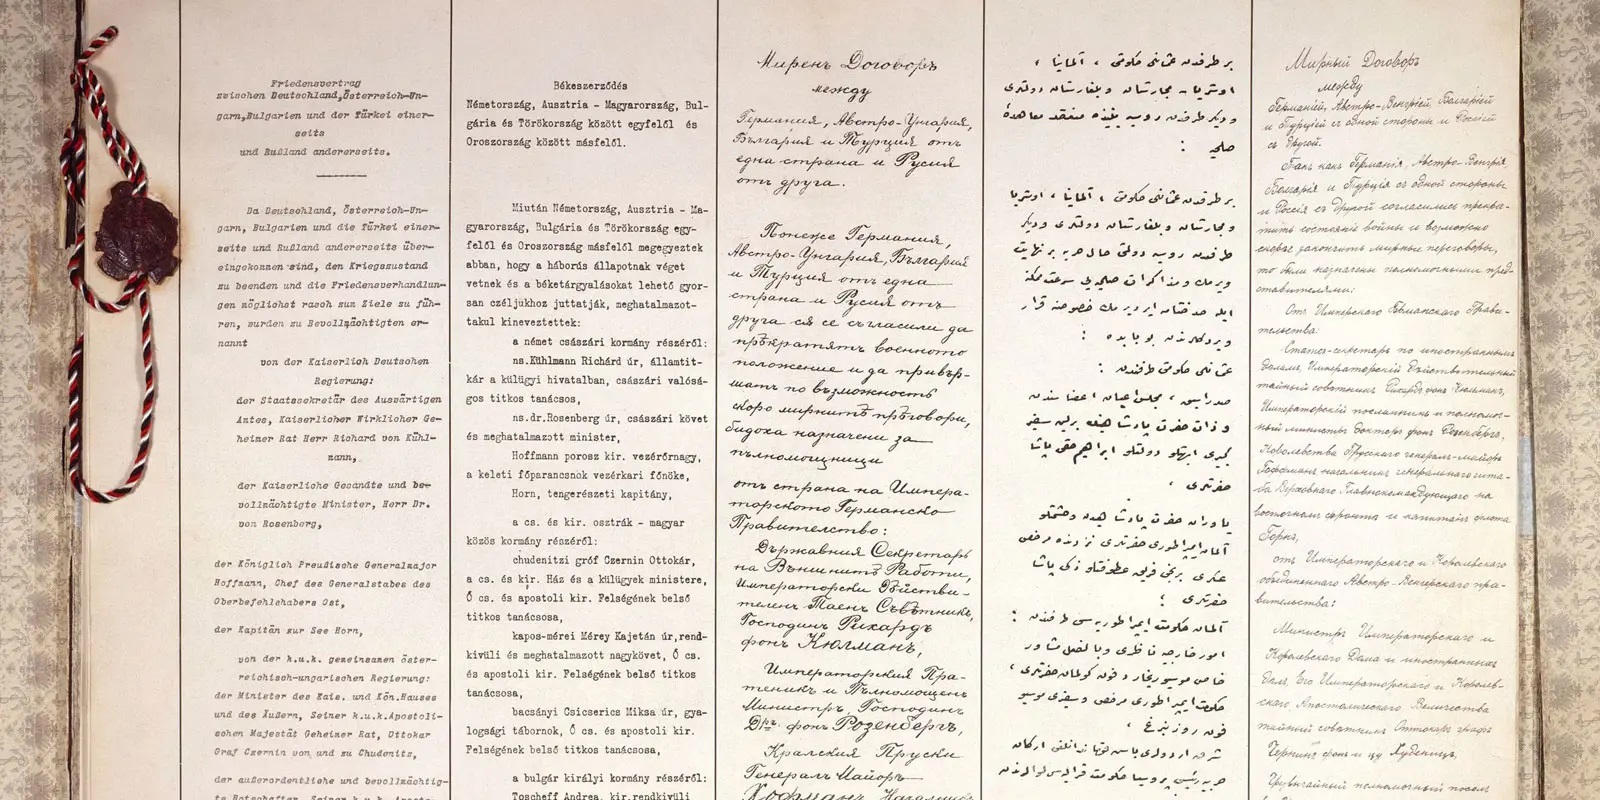 Friedensvertrag
zwischen Deutschland, Österreich-Un-
garn, Bulgarien und der Türkei einer-
seits
und Rußland andererseits.
Da Deutschland, Österreich-Un-
garn, Bulgarien und die Türkei einer-
seits und Rußland andererseits über-
eingekommen sind, den Kriegszustand
zu beenden und die Friedensverhandlun-
gen möglichst rasch zum Ziele zu füh-
ren, wurden zu Bevollmächtigten er-
nannt
von der Kaiserlich Deutschen
Regierung:
der Staatssekretär des Auswärtigen
Amtes, Kaiserlicher Wirklicher Ge-
heimer Rat Herr Richard von Kühl-
mann,
der Kaiserliche Gesandte und be-
vollmächtigte Minister, Herr Dr.
von Rosenberg,
der Königlich Preußische Generalmajor
Hoffmann, Chef des Generalstabes des
Oberbefehlshabers Ost,
der Kapitän zur See Horn,
von der k.u.k. gemeinsamen öster-
reichisch-ungarischen Regierung:
der Minister des Kais. und Kön. Hauses
und des Äußern, Seiner k.u.k. Apostoli-
schen Majestät Geheimer Rat, Ottokar
Graf Czernin von und zu Chudenitz,
der außerordentliche und bevollmächtig-
te Botschafter, Seiner k.u.k.
Békeszerződés
Németország, Ausztria - Magyarország, Bul-
gária és Törökország között egyfelől és
Oroszország között másfelől.
Miután Németország, Ausztria - Ma-
gyarország, Bulgária és Törökország egy-
felől és Oroszország másfelől megegyeztek
abban, hogy a háborús állapotnak véget
vetnek és a béketárgyalásokat lehető gyor-
san céljukhoz juttatják, meghatalmazot-
takul kineveztettek:
a német császári kormány részéről:
ns.Kühlmann Richárd úr, államtit-
kár a külügyi hivatalban, császári valósá-
gos titkos tanácsos,
ns.dr.Rosenberg úr, császári követ
és meghatalmazott minister,
Hoffmann porosz kir. vezérőrnagy,
a keleti főparancsnok vezérkari főnöke,
Horn, tengerészeti kapitány,
a cs. és kir. osztrák - magyar
közös kormány részéről:
chudenitzi gróf Czernin Ottokár,
a cs. és kir. Ház és a külügyek ministere,
Ő cs. és apostoli kir. Felségének belső
titkos tanácsosa,
kapos-mérei Mérey Kajetán úr,rend-
kivüli és meghatalmazott nagykövet, Ő cs.
és apostoli kir. Felségének belső titkos
tanácsosa,
bacsányi Csicserics Miksa úr, gya-
logsági tábornok, Ő cs. és apostoli kir.
Felségének belső titkos tanácsosa,
a bulgár királyi kormány részéről:
Toscheff Andrea, kir.rendkivüli
Миренъ Договоръ
между
Германия, Австро-Унгария,
България и Турция отъ
една страна и Русия
отъ друга.
Понеже Германия,
Австро-Унгария, България
и Турция отъ една
страна и Русия отъ
друга ся се съгласили да
прѣкратятъ военното
положение и да привър-
шатъ по възможность
скоро мирнитѣ прѣговори,
бидоха назначени за
пълномощници
отъ страна на Импера-
торското Германско
Правителство:
Държавния Секретарь
на Външнитѣ Работи,
Императорски Дѣйстви-
теленъ Таенъ Съвѣтникъ,
Господинъ Рихардъ
фонъ Кюлманъ,
Императорския Пра-
теникъ и Пълномощенъ
Министръ, Господинъ
Дръ фонъ Розенбергъ,
Кралския Пруски
Генералъ Майоръ
Хофманъ, Началникъ
بر طرفدن عثمانلی حکومتی ، آلمانیا ،
اوستریا ، مجارستان و بلغارستان دولتلری
و دیگر طرفدن روسیه بیننده منعقد معاهدۀ
صلحیه :
بر طرفدن عثمانلی حکومتی ، آلمانیا ، اوستریا
و مجارستان و بلغارستان دولتلری و دیگر
طرفدن روسیه دولتی حال حربه بر نهایت
عثمانلی حکومتی طرفندن :
Мирный Договоръ
между
Германіей, Австро-Венгріей, Болгаріей
и Турціей съ одной стороны и Россіей
съ другой.
Такъ какъ Германія, Австро-Венгрія,
Болгарія и Турція съ одной стороны
и Россія съ другой согласились прекра-
тить состояніе войны и возможно
скорѣе закончить мирные переговоры,
то были назначены полномочными пред-
ставителями:
Отъ Имперскаго Германскаго Прави-
тельства:
Статсъ-секретарь по иностраннымъ
дѣламъ, Императорскій дѣйствительный
тайный совѣтникъ Рихардъ фонъ Кюльманъ,
Императорскій посланникъ и полномоч-
ный министръ докторъ фонъ Розенбергъ,
Королевскій Прусскій генералъ-майоръ
Гофманъ, начальникъ генеральнаго шта-
ба Верховнаго Главнокомандующаго на
восточномъ фронтѣ и капитанъ флота
Горнъ,
отъ Императорскаго и Королевскаго
объединеннаго Австро-Венгерскаго пра-
вительства:
Министръ Императорскаго и
Королевскаго Дома и иностранныхъ
дѣлъ, Его Императорскаго и Королев-
скаго Апостолическаго Величества
тайный совѣтникъ Оттокаръ графъ
Чернинъ фонъ и цу Худеницъ,
Чрезвычайный и полномочный посолъ